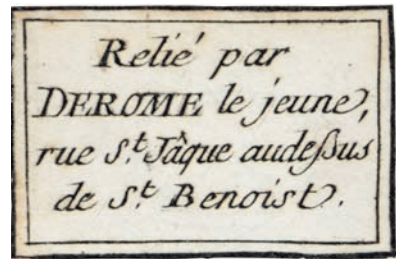 Relié par
DEROME le jeune,
rue S.t Jâque audeſsus
de S.t Benoist.